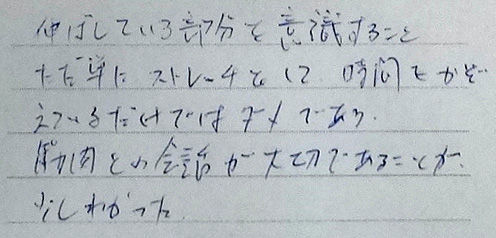 伸ばしている部分を意識すること
ただ単に ストレーチをして 時間をかぞ
えているだけではダメであり.
筋肉との会話が大切であることが.
少しわかった.